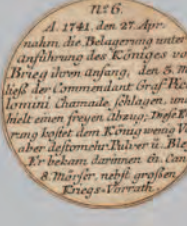 No 6.
A. 1741. den 27. Apr.
nahm die Belagerung unter
anführung des Königes vo
Brieg ihren Anfang, den 5. M
ließ der Commendant Graf Pi
lomini Chamade schlagen, un
hielt einen freyen abzug; Diese B
rung kostet dem König wenig V
aber destomehr Pulver u. Ble
Er bekam darinnen 61. Can
8. Mörser. nebst großen
Kriegs-Vorrath.